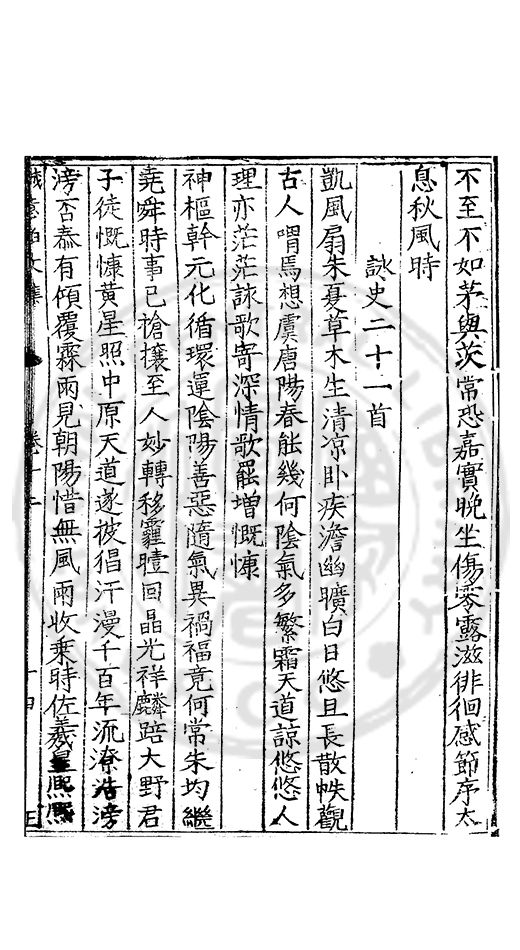 不至不如茅與茨常恐嘉實晚坐傷零露滋徘徊感節序太
息秋風時
詠史二十一首
凱風扇朱夏草木生清凉卧疾澹幽曠白日悠且長散帙觀
古人喟焉想虞唐陽春能幾何陰氣多繁霜天道諒悠悠人
理亦茫茫詠歌寄深情歌罷增慨慷
神樞幹元化循環運陰陽善惡隨氣異禍福竟何常朱均繼
堯舜時事已搶攘至人妙轉移霾曀回晶光祥麟踣大野君
子徒慨慷黃星照中原天道遂披猖汗漫千百年流潦浩滂
滂否泰有傾覆霖雨見朝陽惜無風雨收乗時佐羲皇熙熙
誠意伯文集 卷十 十四